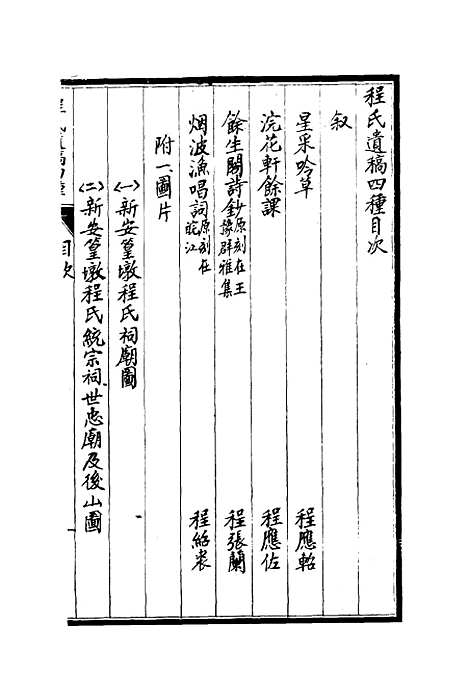 程氏遺稿四種目次
叙
星采吟草 程應軺
浣花軒餘課 程應佐
餘生閣詩鈔原刻在王豫群雅集 程張蘭
烟波漁唱詞原刻在皖江 程紹裳
附一、圖片
㈠新安篁墩程氏祠廟圖
㈡新安篁墩程氏統宗祠世忠廟及後山圖
目次